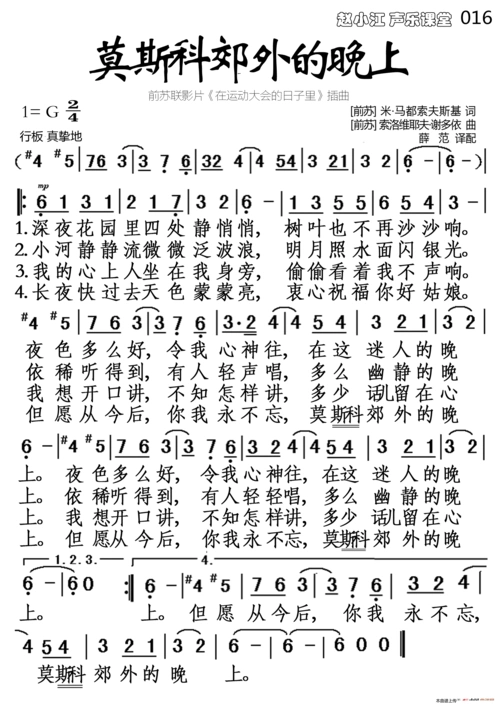 赵小江 声乐课堂 016
莫斯科郊外的晚上
前苏联影片《在运动大会的日子里》插曲
1= G 2/4
[前苏] 米·马都索夫斯基 词
[前苏] 索洛维耶夫·谢多依 曲
薛 范 译配
行板 真挚地
( #4 #5 | 76 3 | 3 7 6 | 5 4 3 | 1 3 2 | 6 - | 6 - )
mp
‖: 6 1 3 1 | 2 1 7 | 3 2 | 6 - | 1 3 5 5 | 6 5 4 | 3 - |
1.深夜花园里四处静悄悄, 树叶也不再沙沙响。
2.小河静静流微微泛波浪, 明月照水面闪银光。
3.我的心上人坐在我身旁, 偷偷看着我不声响。
4.长夜快过去天色蒙蒙亮, 衷心祝福你好姑娘。
#4 #5 | 7 6 3 | 3 7 6 | 3·2 | 4 5 4 | 3 2 1 | 3 2 |
夜色多么好, 令我心神往, 在这迷人的晚
依稀听得到, 有人轻声唱, 多么幽静的晚
我想开口讲, 不知怎样讲, 多少话儿留在心
但愿从今后, 你我永不忘, 莫斯科郊外的晚
6 - | #4 #5 | 7 6 3 | 3 7 6 | 3 2 | 4 5 4 | 3 2 1 | 3 2 |
上。夜色多么好, 令我心神往, 在这迷人的晚
上。依稀听得到, 有人轻轻唱, 多么幽静的晚
上。我想开口讲, 不知怎样讲, 多少话儿留在心
上。但愿从今后, 你我永不忘, 莫斯科郊外的晚
1. 2. 3. 4.
6 - | 6 0 :‖ 6 - | #4 #5 | 7 6 3 | 3 7 6 | 3 2 |
上。 上。但愿从今后, 你我永不忘,
4 5 4 | 3 2 1 | 3 2 | 6 - | 6 - | 6 0 ‖
莫斯科郊外的晚上。